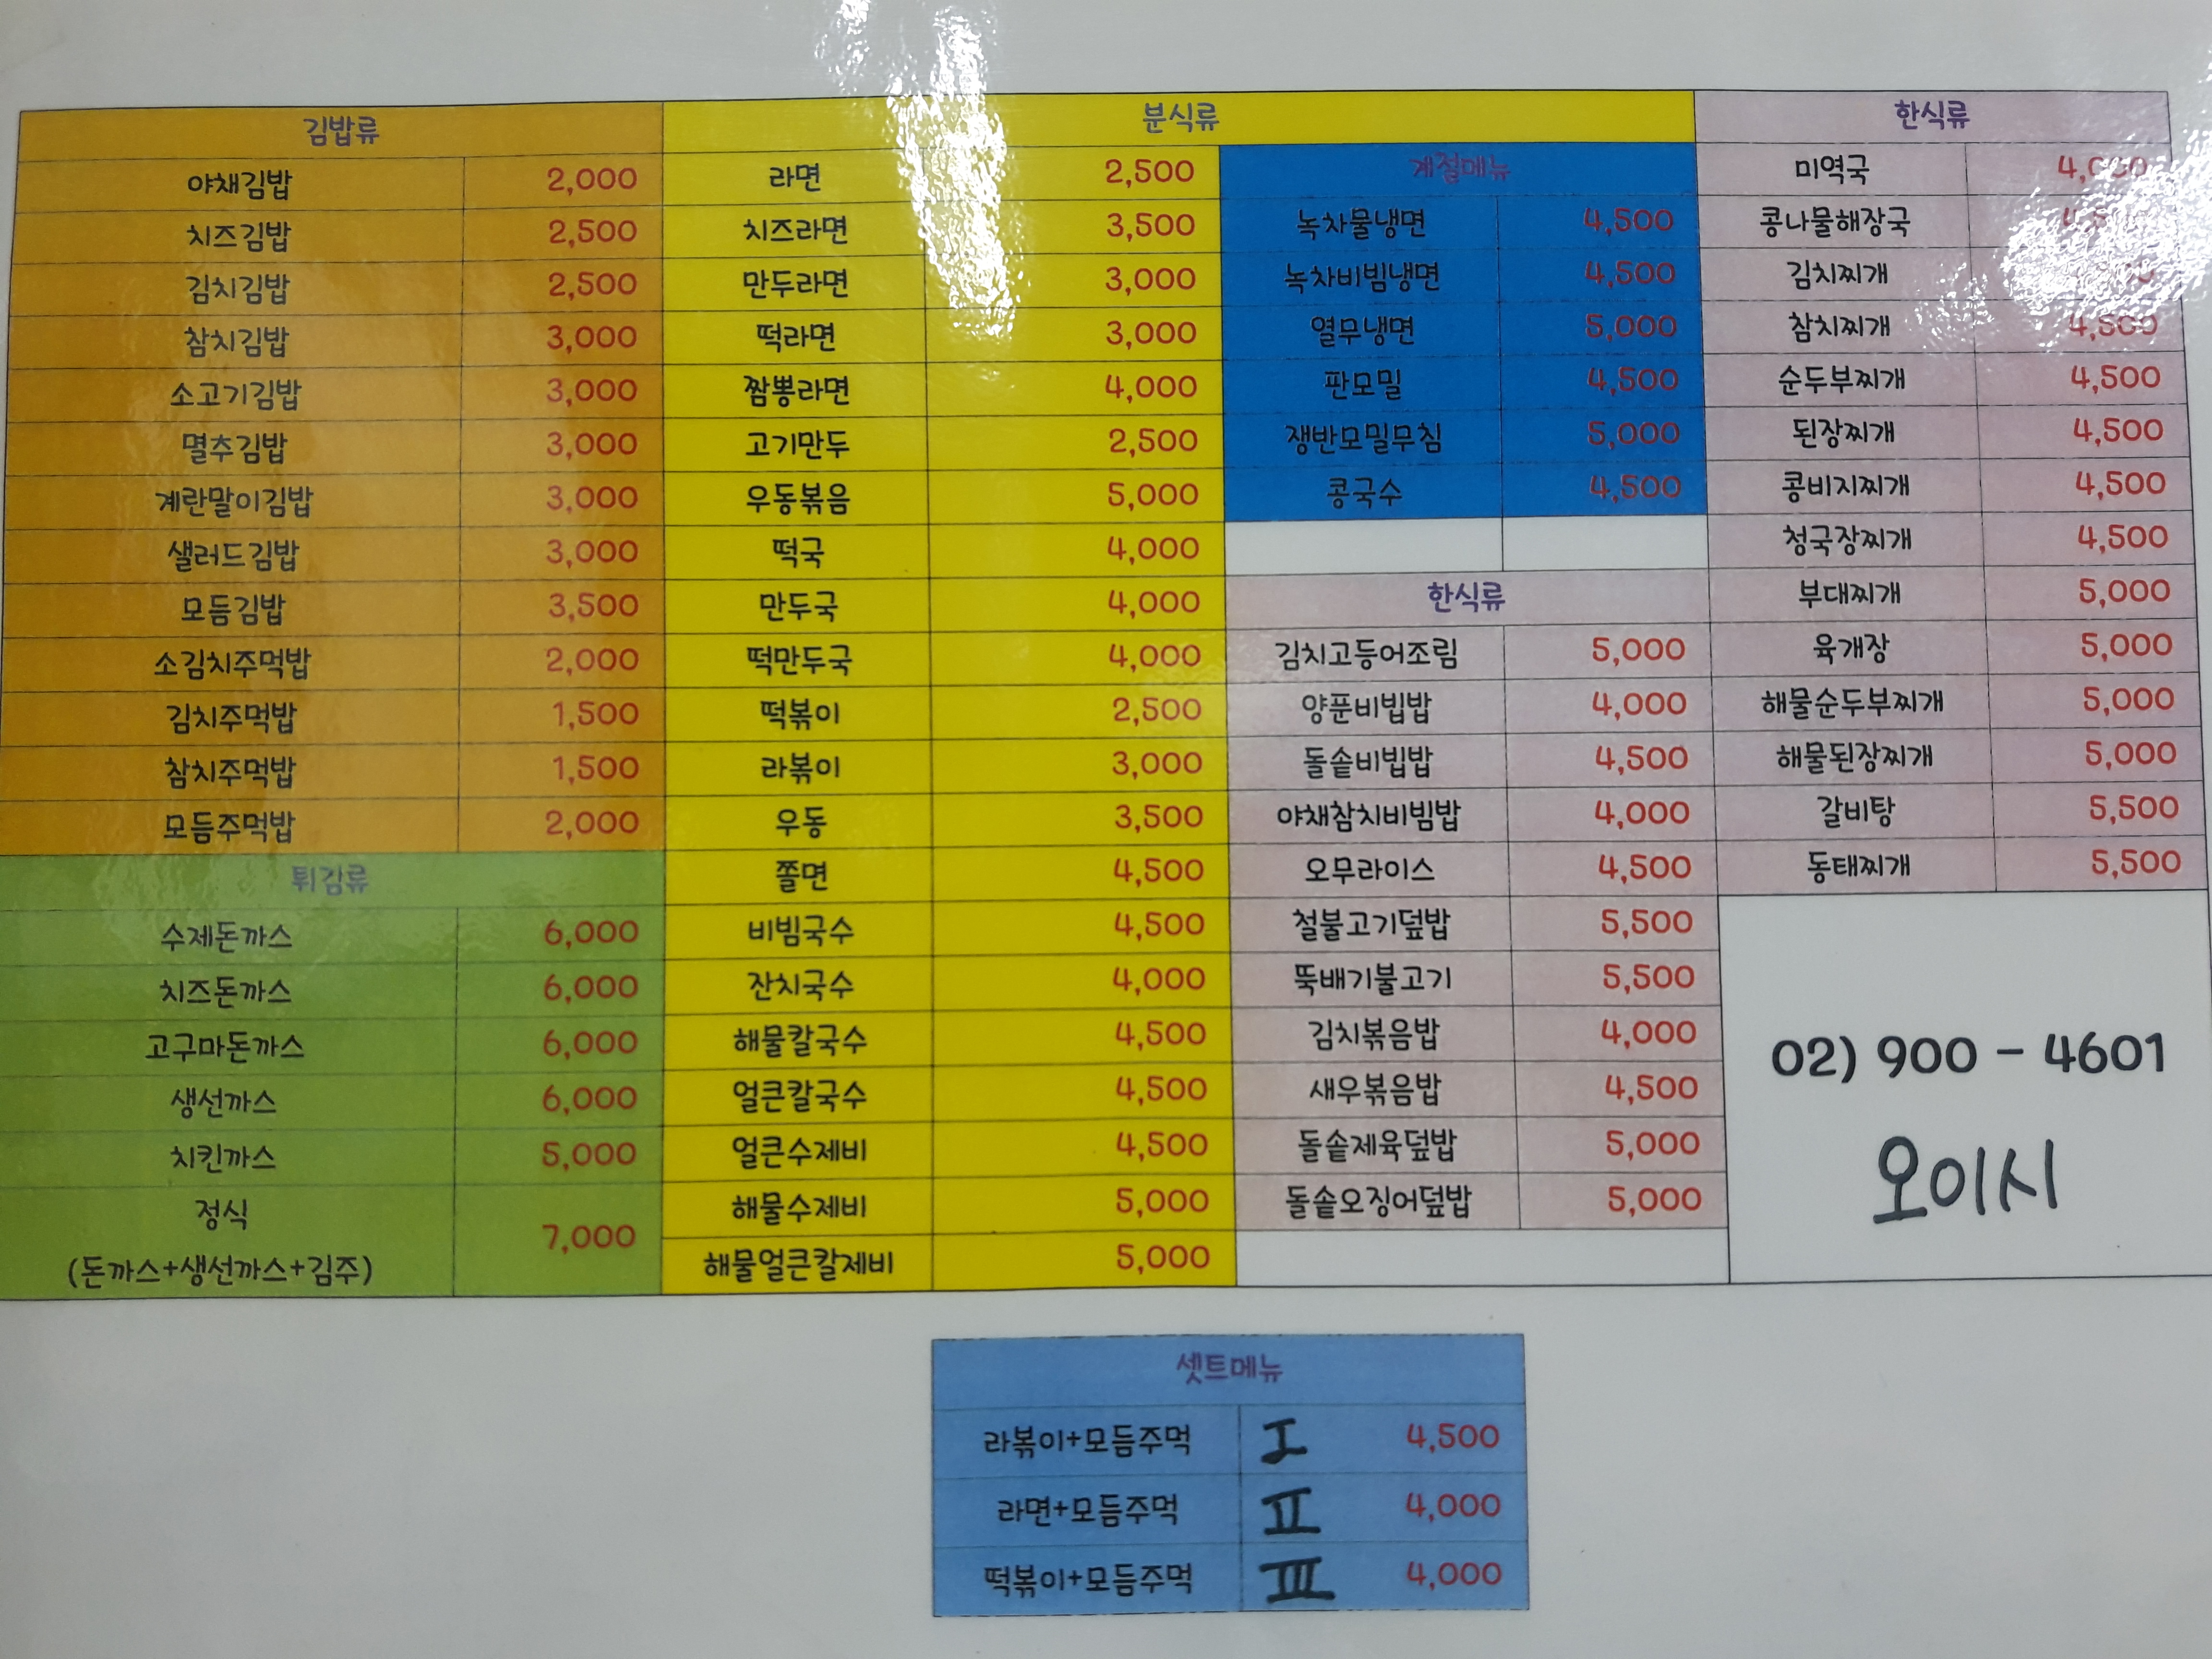 김밥류
야채김밥 2,000
치즈김밥 2,500
김치김밥 2,500
참치김밥 3,000
소고기김밥 3,000
멸추김밥 3,000
계란말이김밥 3,000
샐러드김밥 3,000
모듬김밥 3,500
소김치주먹밥 2,000
김치주먹밥 1,500
참치주먹밥 1,500
모듬주먹밥 2,000
튀김류
수제돈까스 6,000
치즈돈까스 6,000
고구마돈까스 6,000
생선까스 6,000
치킨까스 5,000
정식 7,000
(돈까스+생선까스+김주)
분식류
라면 2,500
치즈라면 3,500
만두라면 3,000
떡라면 3,000
짬뽕라면 4,000
고기만두 2,500
우동볶음 5,000
떡국 4,000
만두국 4,000
떡만두국 4,000
떡볶이 2,500
라볶이 3,000
우동 3,500
쫄면 4,500
비빔국수 4,500
잔치국수 4,000
해물칼국수 4,500
얼큰칼국수 4,500
얼큰수제비 4,500
해물수제비 5,000
해물얼큰칼제비 5,000
계절메뉴
녹차물냉면 4,500
녹차비빔냉면 4,500
열무냉면 5,000
판모밀 4,500
쟁반모밀무침 5,000
콩국수 4,500
한식류
김치고등어조림 5,000
양푼비빕밥 4,000
돌솥비빕밥 4,500
야채참치비빔밥 4,000
오무라이스 4,500
철불고기덮밥 5,500
뚝배기불고기 5,500
김치볶음밥 4,000
새우볶음밥 4,500
돌솥제육덮밥 5,000
돌솥오징어덮밥 5,000
한식류
미역국
콩나물해장국
김치찌개
참치찌개 4,500
순두부찌개 4,500
된장찌개 4,500
콩비지찌개 4,500
청국장찌개 4,500
부대찌개 5,000
육개장 5,000
해물순두부찌개 5,000
해물된장찌개 5,000
갈비탕 5,500
동태찌개 5,500
02) 900 - 4601
오이시
셋트메뉴
라볶이+모듬주먹 I 4,500
라면+모듬주먹 II 4,000
떡볶이+모듬주먹 III 4,000